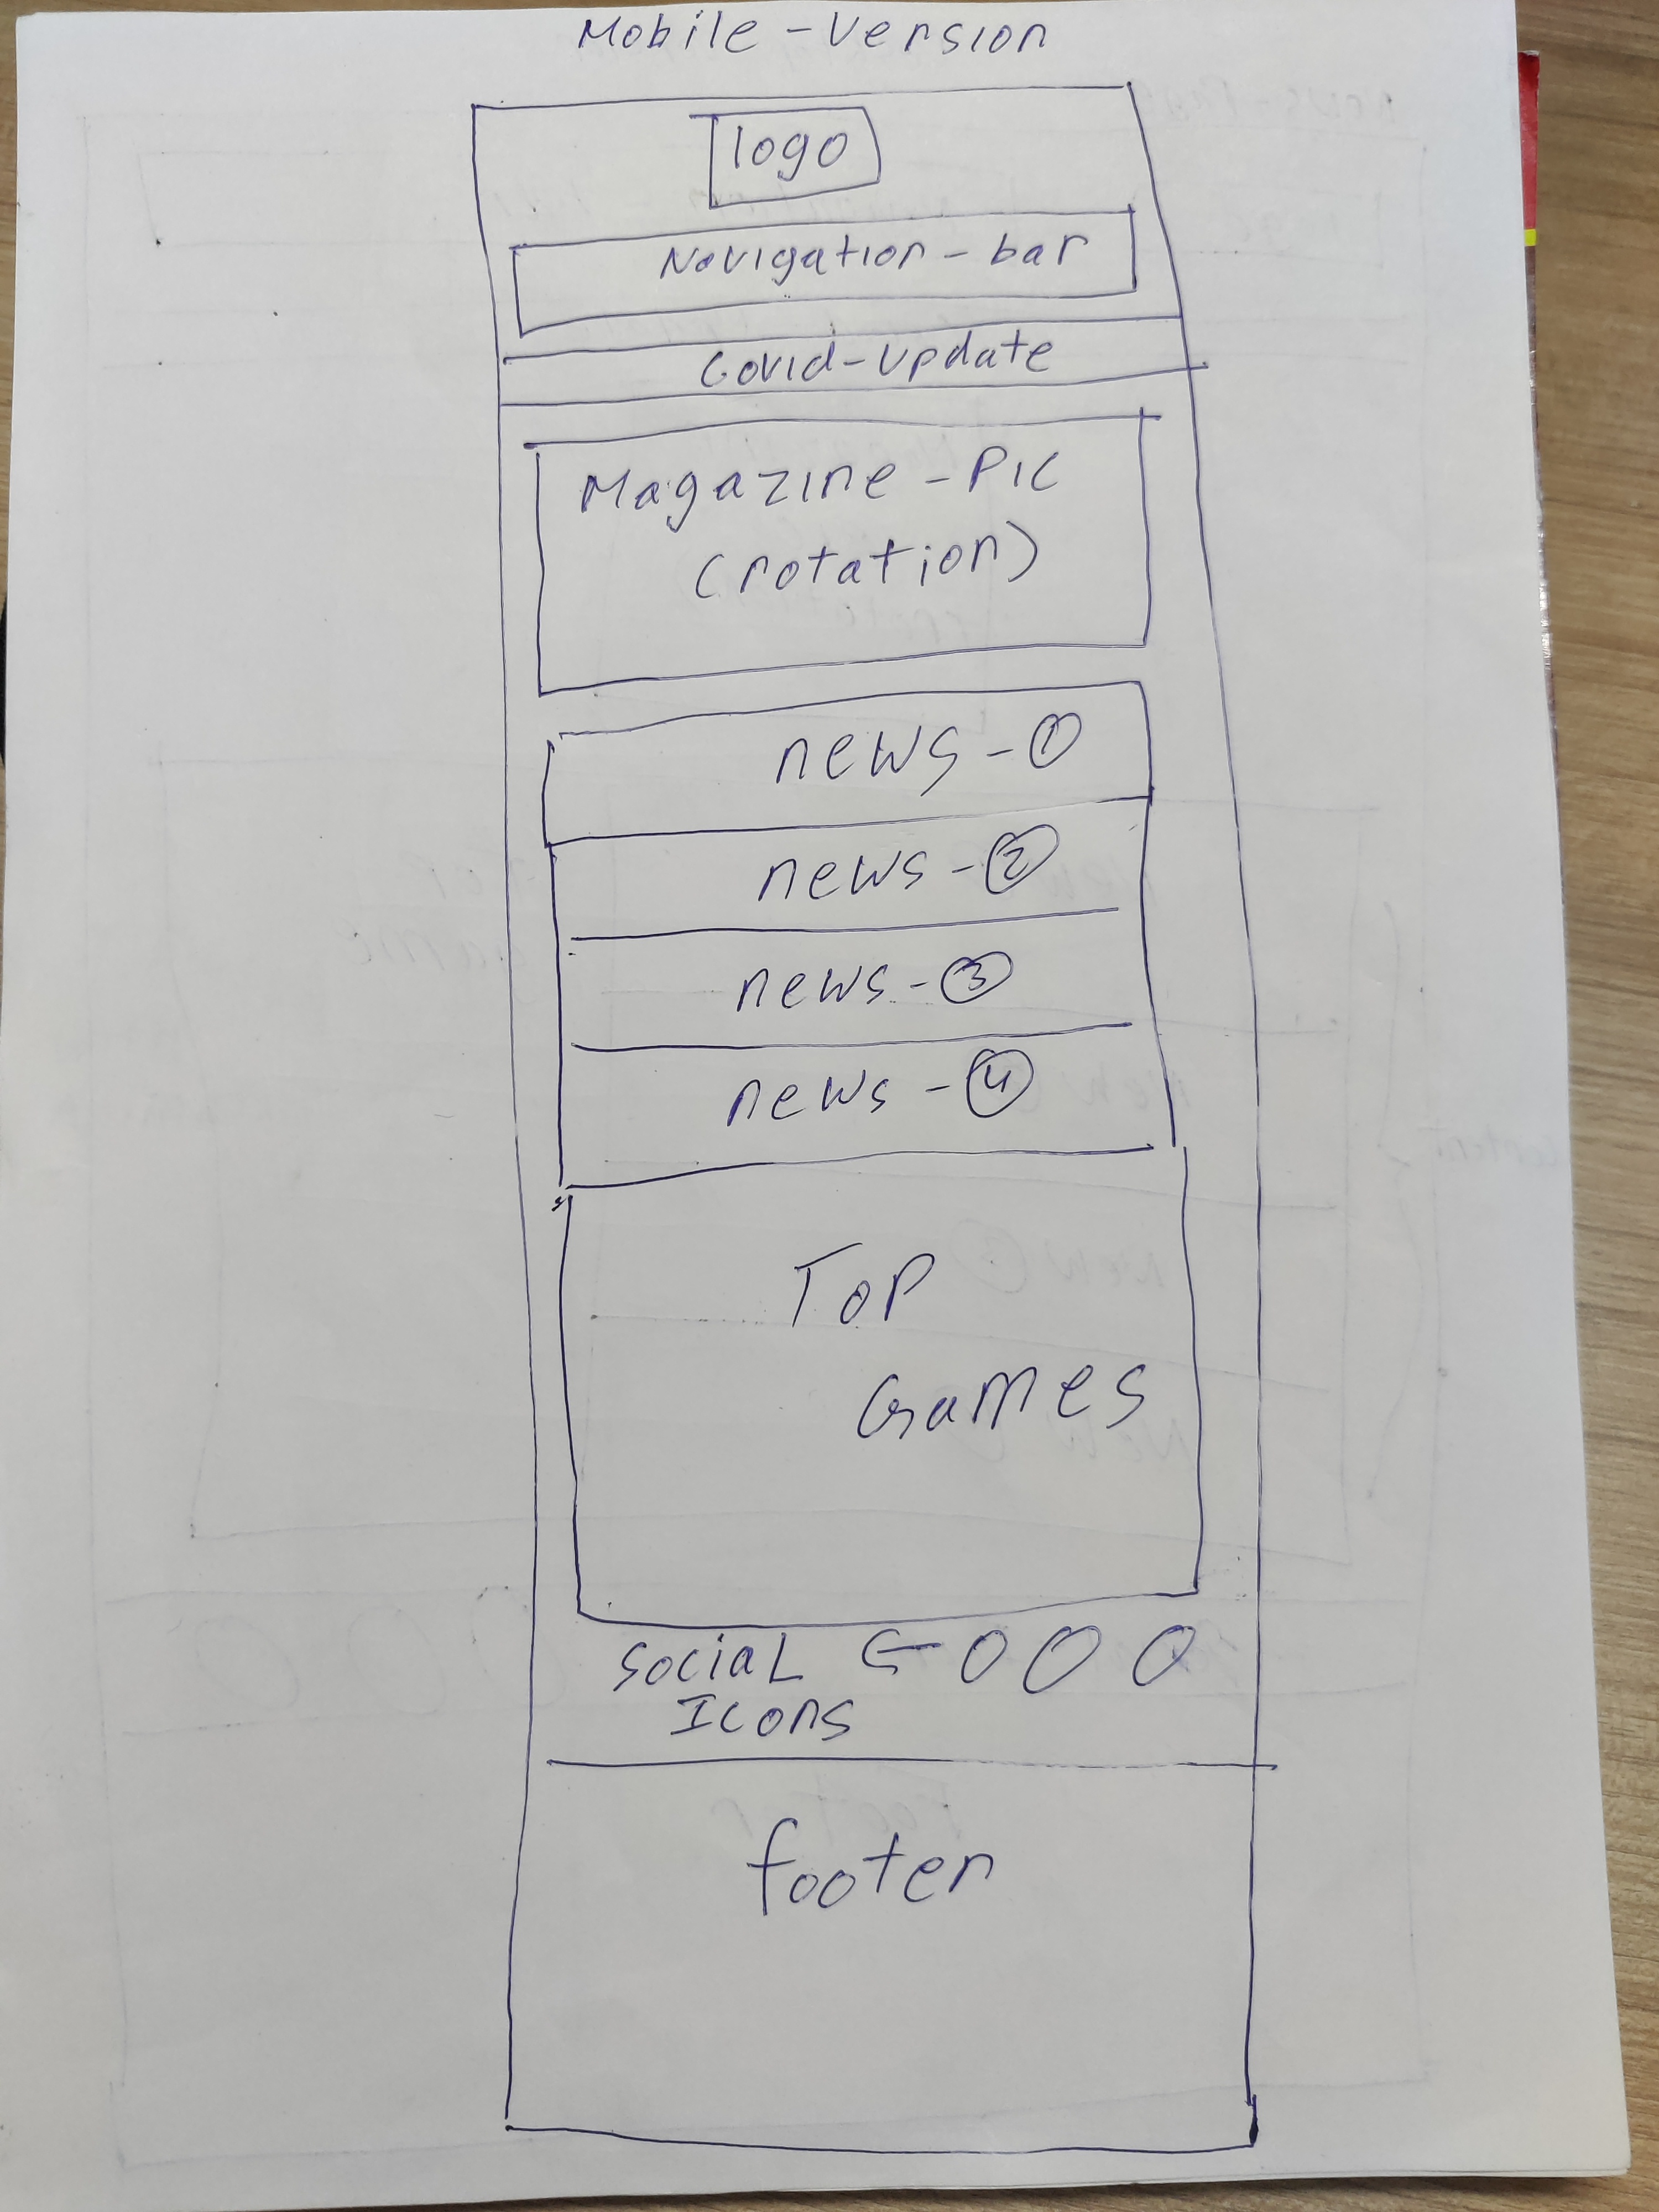 Mobile-Version
logo
Navigation-bar
Covid-update
Magazine-Pic
(rotation)
news-1
news-2
news-3
news-4
Top
Games
social
Icons
footer